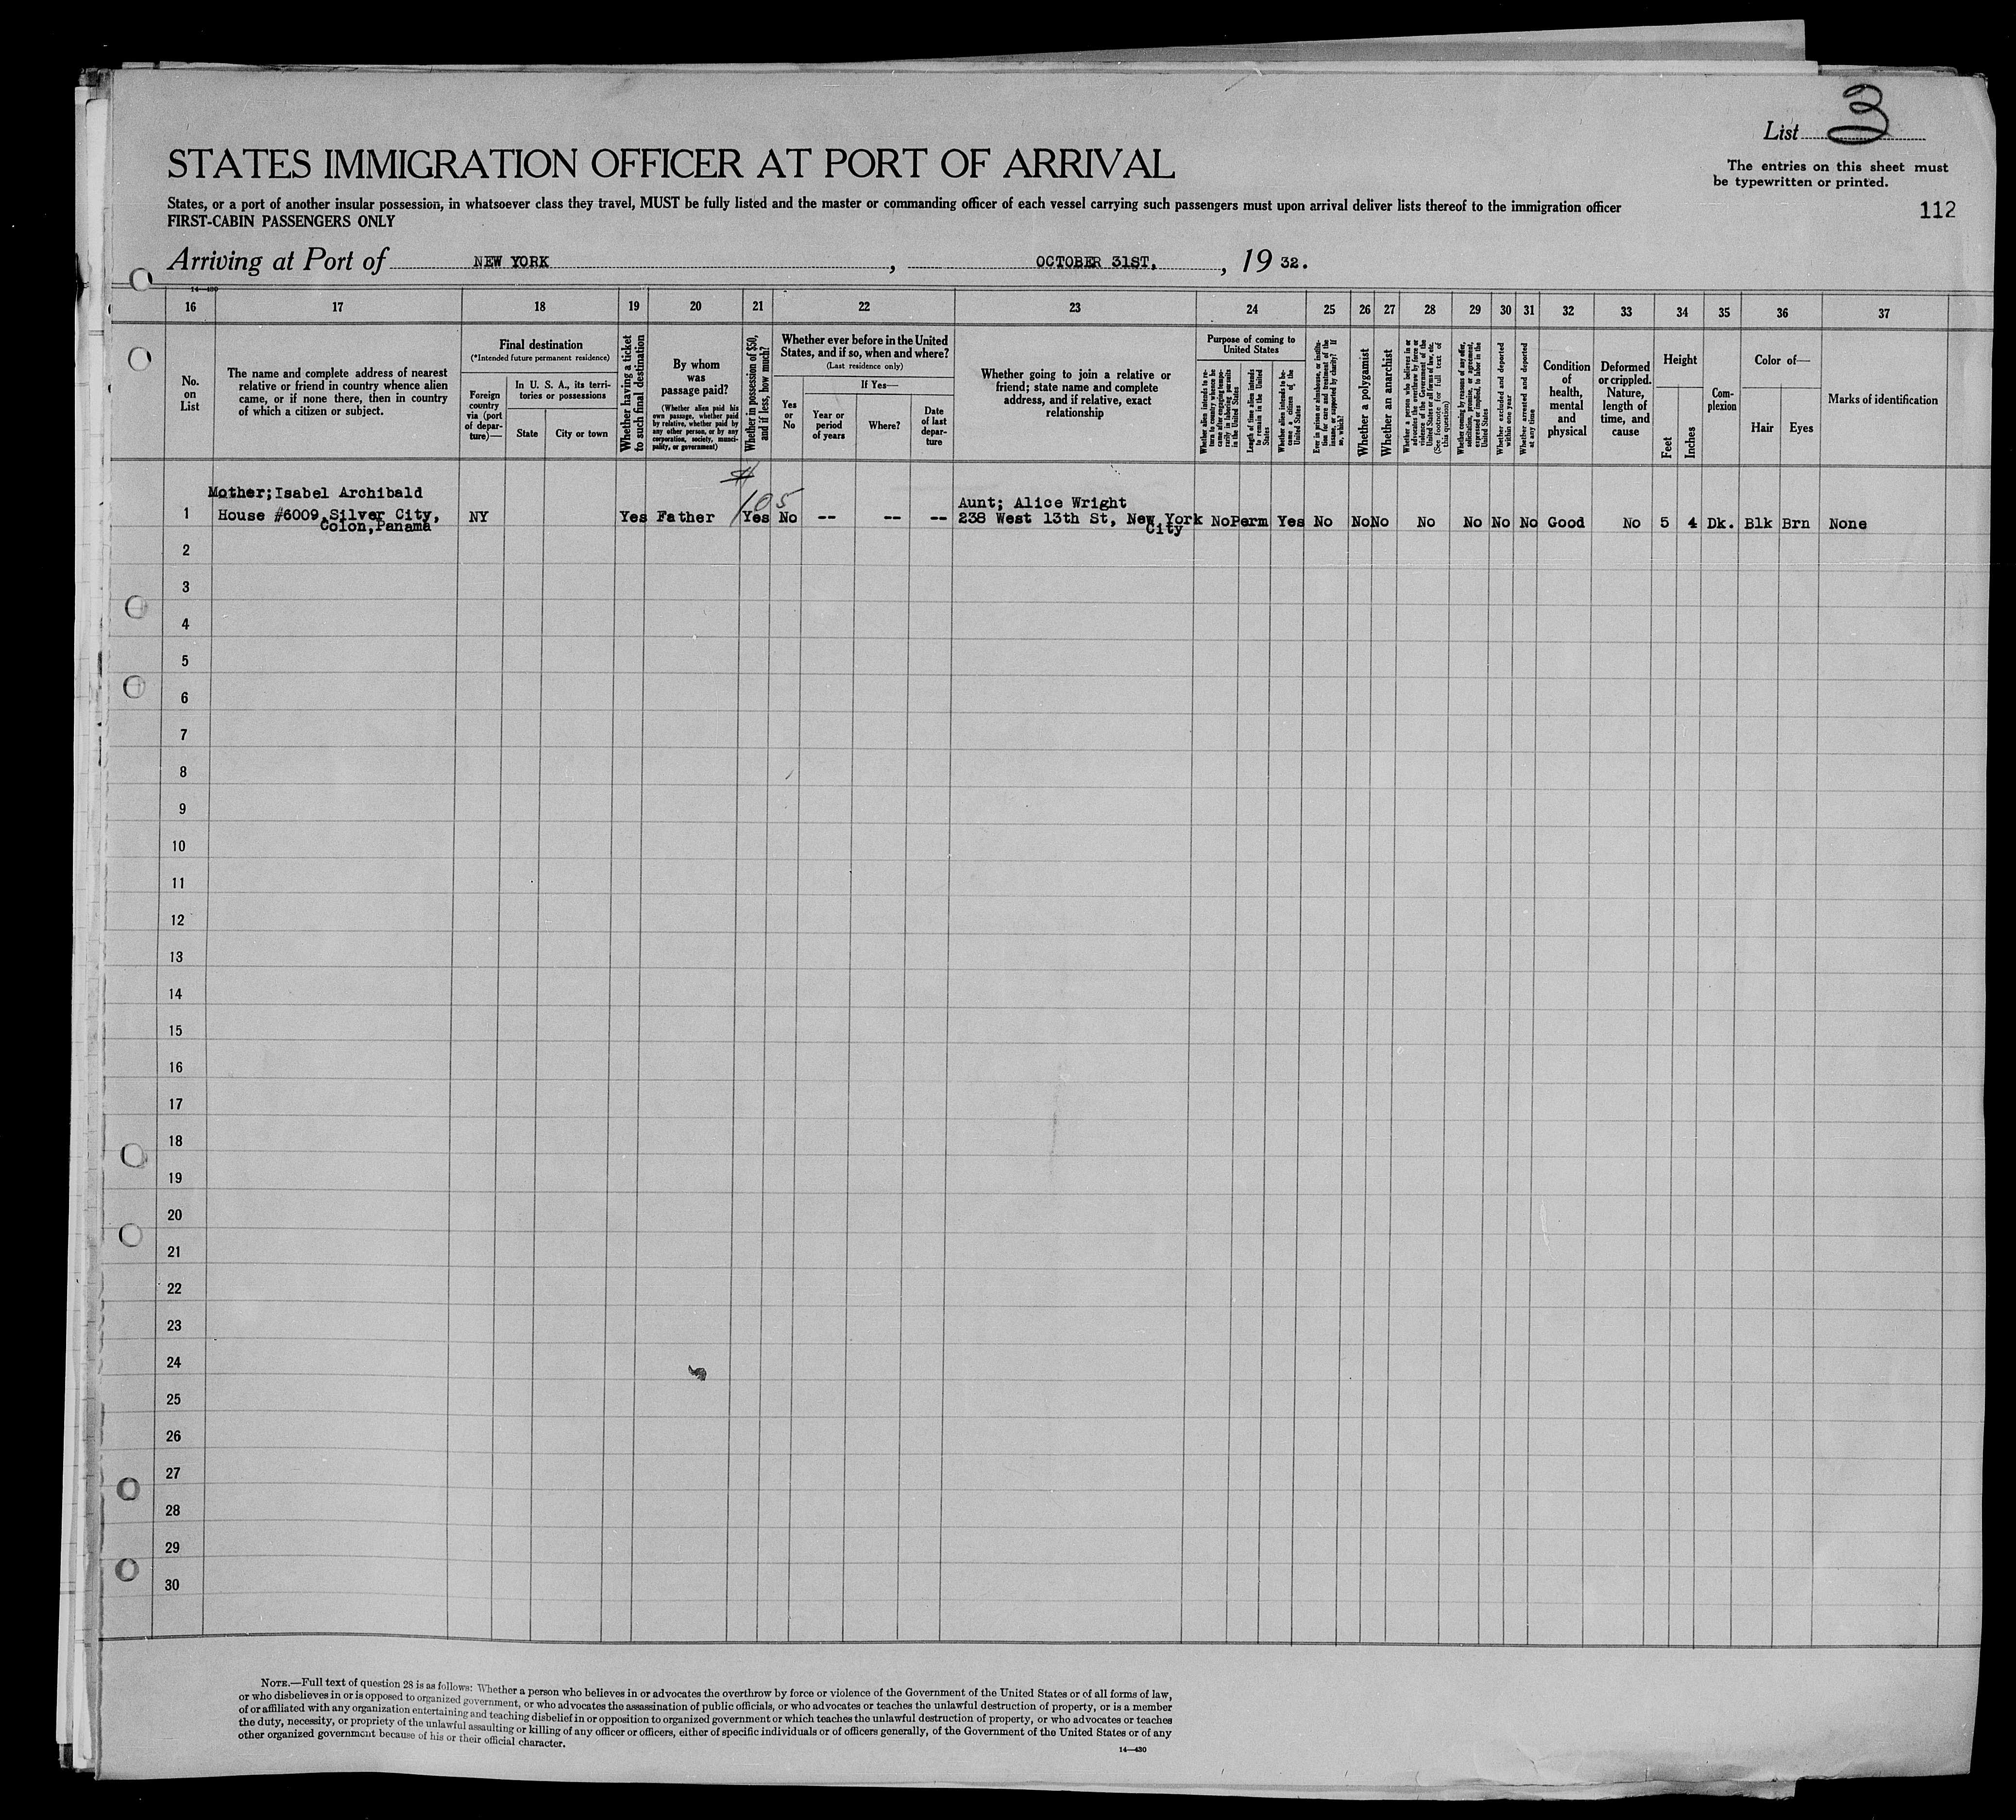 List 3
STATES IMMIGRATION OFFICER AT PORT OF ARRIVAL
The entries on this sheet must
be typewritten or printed.
States, or a port of another insular possession, in whatsoever class they travel, MUST be fully listed and the master or commanding officer of each vessel carrying such passengers must upon arrival deliver lists thereof to the immigration officer
FIRST-CABIN PASSENGERS ONLY
112
Arriving at Port of NEW YORK, OCTOBER 31ST, , 19 32.
14—430
16 17 18 19 20 21 22 23 24 25 26 27 28 29 30 31 32 33 34 35 36 37
No.
on
List
The name and complete address of nearest
relative or friend in country whence alien
came, or if none there, then in country
of which a citizen or subject.
Final destination
(*Intended future permanent residence)
Foreign
country
via (port
of depar-
ture)—
In U. S. A., its terri-
tories or possessions
State
City or town
Whether having a ticket
to such final destination
By whom
was
passage paid?
(Whether alien paid his
own passage, whether paid
by relative, whether paid by
any other person, or by any
corporation, society, munici-
pality, or government)
Whether in possession of $50,
and if less, how much?
Whether ever before in the United
States, and if so, when and where?
(Last residence only)
Yes
or
No
If Yes—
Year or
period
of years
Where?
Date
of last
depar-
ture
Whether going to join a relative or
friend; state name and complete
address, and if relative, exact
relationship
Purpose of coming to
United States
Whether alien intends to re-
turn to country whence he
came after engaging tempo-
rarily in laboring pursuits
in the United States
Length of time alien intends
to remain in the United
States
Whether alien intends to be-
come a citizen of the
United States
Ever in prison or almshouse, or institu-
tion for care and treatment of the
insane, or supported by charity? If
so, which?
Whether a polygamist
Whether an anarchist
Whether a person who believes in or
advocates the overthrow by force or
violence of the Government of the
United States or all forms of law, etc.
(See footnote for full text of
this question)
Whether coming by reasons of any offer,
solicitation, promise, or agreement,
expressed or implied, to labor in the
United States
Whether excluded and deported
within one year
Whether arrested and deported
at any time
Condition
of
health,
mental
and
physical
Deformed
or crippled.
Nature,
length of
time, and
cause
Height
Feet
Inches
Com-
plexion
Color of—
Hair
Eyes
Marks of identification
$
105
Mother;Isabel Archibald
Aunt; Alice Wright
1 House #6009,Silver City, NY Yes Father Yes No -- -- -- 238 West 13th St, New York No Perm Yes No No No No No No No Good No 5 4 Dk. Blk Brn None
Colon,Panama
City
2
3
4
5
6
7
8
9
10
11
12
13
14
15
16
17
18
19
20
21
22
23
24
25
26
27
28
29
30
NOTE.—Full text of question 28 is as follows: Whether a person who believes in or advocates the overthrow by force or violence of the Government of the United States or of all forms of law,
or who disbelieves in or is opposed to organized government, or who advocates the assassination of public officials, or who advocates or teaches the unlawful destruction of property, or is a member
of or affiliated with any organization entertaining and teaching disbelief in or opposition to organized government or which teaches the unlawful destruction of property, or who advocates or teaches
the duty, necessity, or propriety of the unlawful assaulting or killing of any officer or officers, either of specific individuals or of officers generally, of the Government of the United States or of any
other organized government because of his or their official character.
14—430